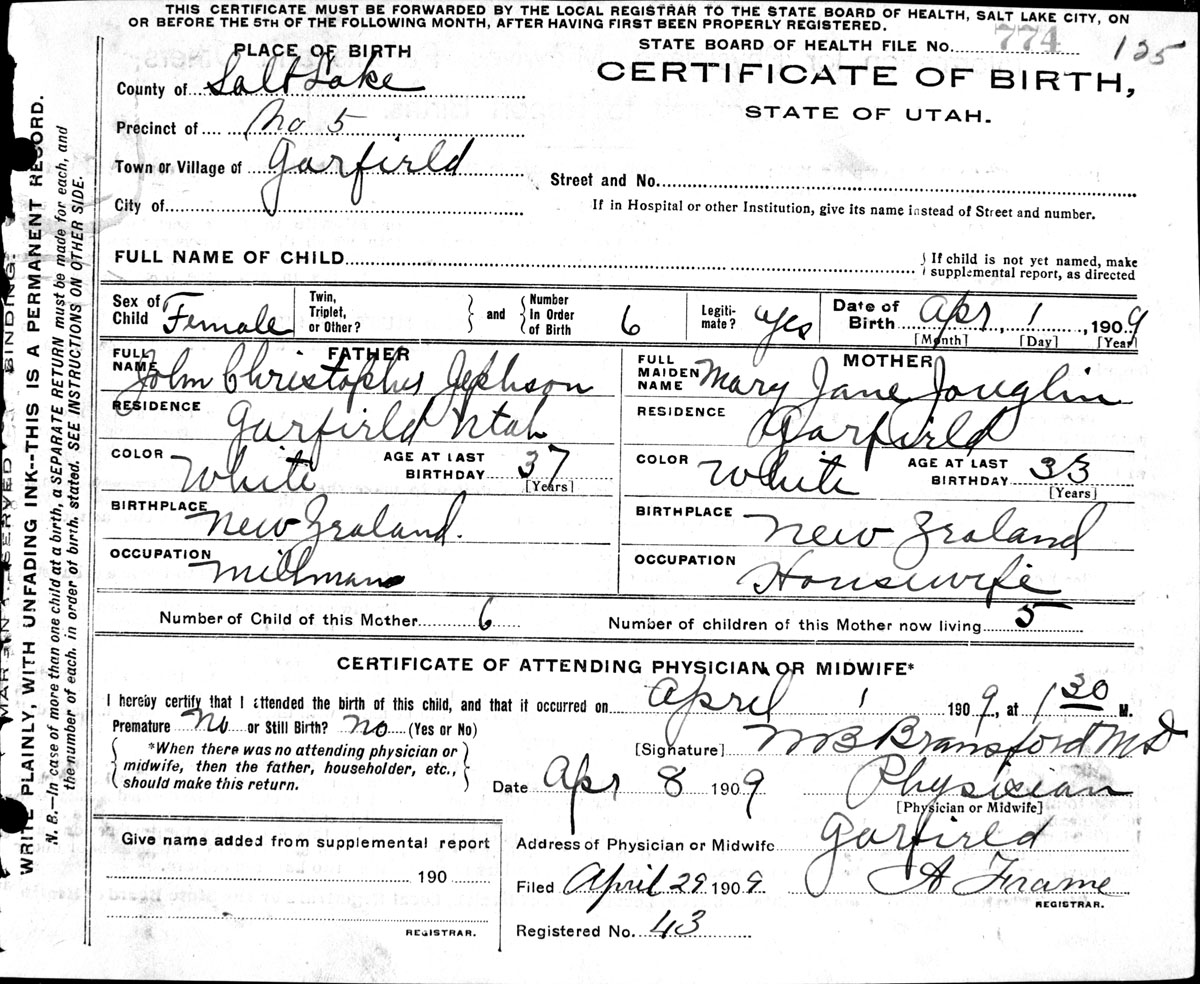 THIS CERTIFICATE MUST BE FORWARDED BY THE LOCAL REGISTRAR TO THE STATE BOARD OF HEALTH, SALT LAKE CITY, ON
OR BEFORE THE 5TH OF THE FOLLOWING MONTH, AFTER HAVING FIRST BEEN PROPERLY REGISTERED.
PLACE OF BIRTH
STATE BOARD OF HEALTH FILE NO. 774 125
County of Salt Lake
CERTIFICATE OF BIRTH,
STATE OF UTAH.
Precinct of No 5
Town or Village of Garfield
Street and No.
City of
If in Hospital or other Institution, give its name instead of Street and number.
FULL NAME OF CHILD
If child is not yet named, make
supplemental report, as directed
Sex of Child Female
Twin, Triplet, or Other?
and
Number In Order of Birth 6
Legiti-mate? Yes
Date of Birth Apr, 1, 1909
[Month] [Day] [Year]
FATHER
FULL NAME John Christopher Jephson
RESIDENCE Garfield Utah
COLOR White AGE AT LAST BIRTHDAY 37
[Years]
BIRTHPLACE New Zealand.
OCCUPATION Millman
MOTHER
FULL MAIDEN NAME Mary Jane Jouglin
RESIDENCE Garfield
COLOR White AGE AT LAST BIRTHDAY 33
[Years]
BIRTHPLACE New Zealand
OCCUPATION Housewife
Number of Child of this Mother 6 Number of children of this Mother now living 5
CERTIFICATE OF ATTENDING PHYSICIAN OR MIDWIFE*
I hereby certify that I attended the birth of this child, and that it occurred on April 1 1909, at 1 30 M.
Premature No or Still Birth? No (Yes or No)
*When there was no attending physician or
midwife, then the father, householder, etc.,
should make this return.
[Signature] W B Bransford MD
Date Apr 8 1909 Physician
[Physician or Midwife]
Give name added from supplemental report
190
REGISTRAR.
Address of Physician or Midwife Garfield
Filed April 29 1909 A Frame
REGISTRAR.
Registered No. 43
BINDING.
WRITE PLAINLY, WITH UNFADING INK--THIS IS A PERMANENT RECORD.
N. B.—In case of more than one child at a birth, a SEPARATE RETURN must be made for each, and
the number of each, in order of birth, stated. SEE INSTRUCTIONS ON OTHER SIDE.